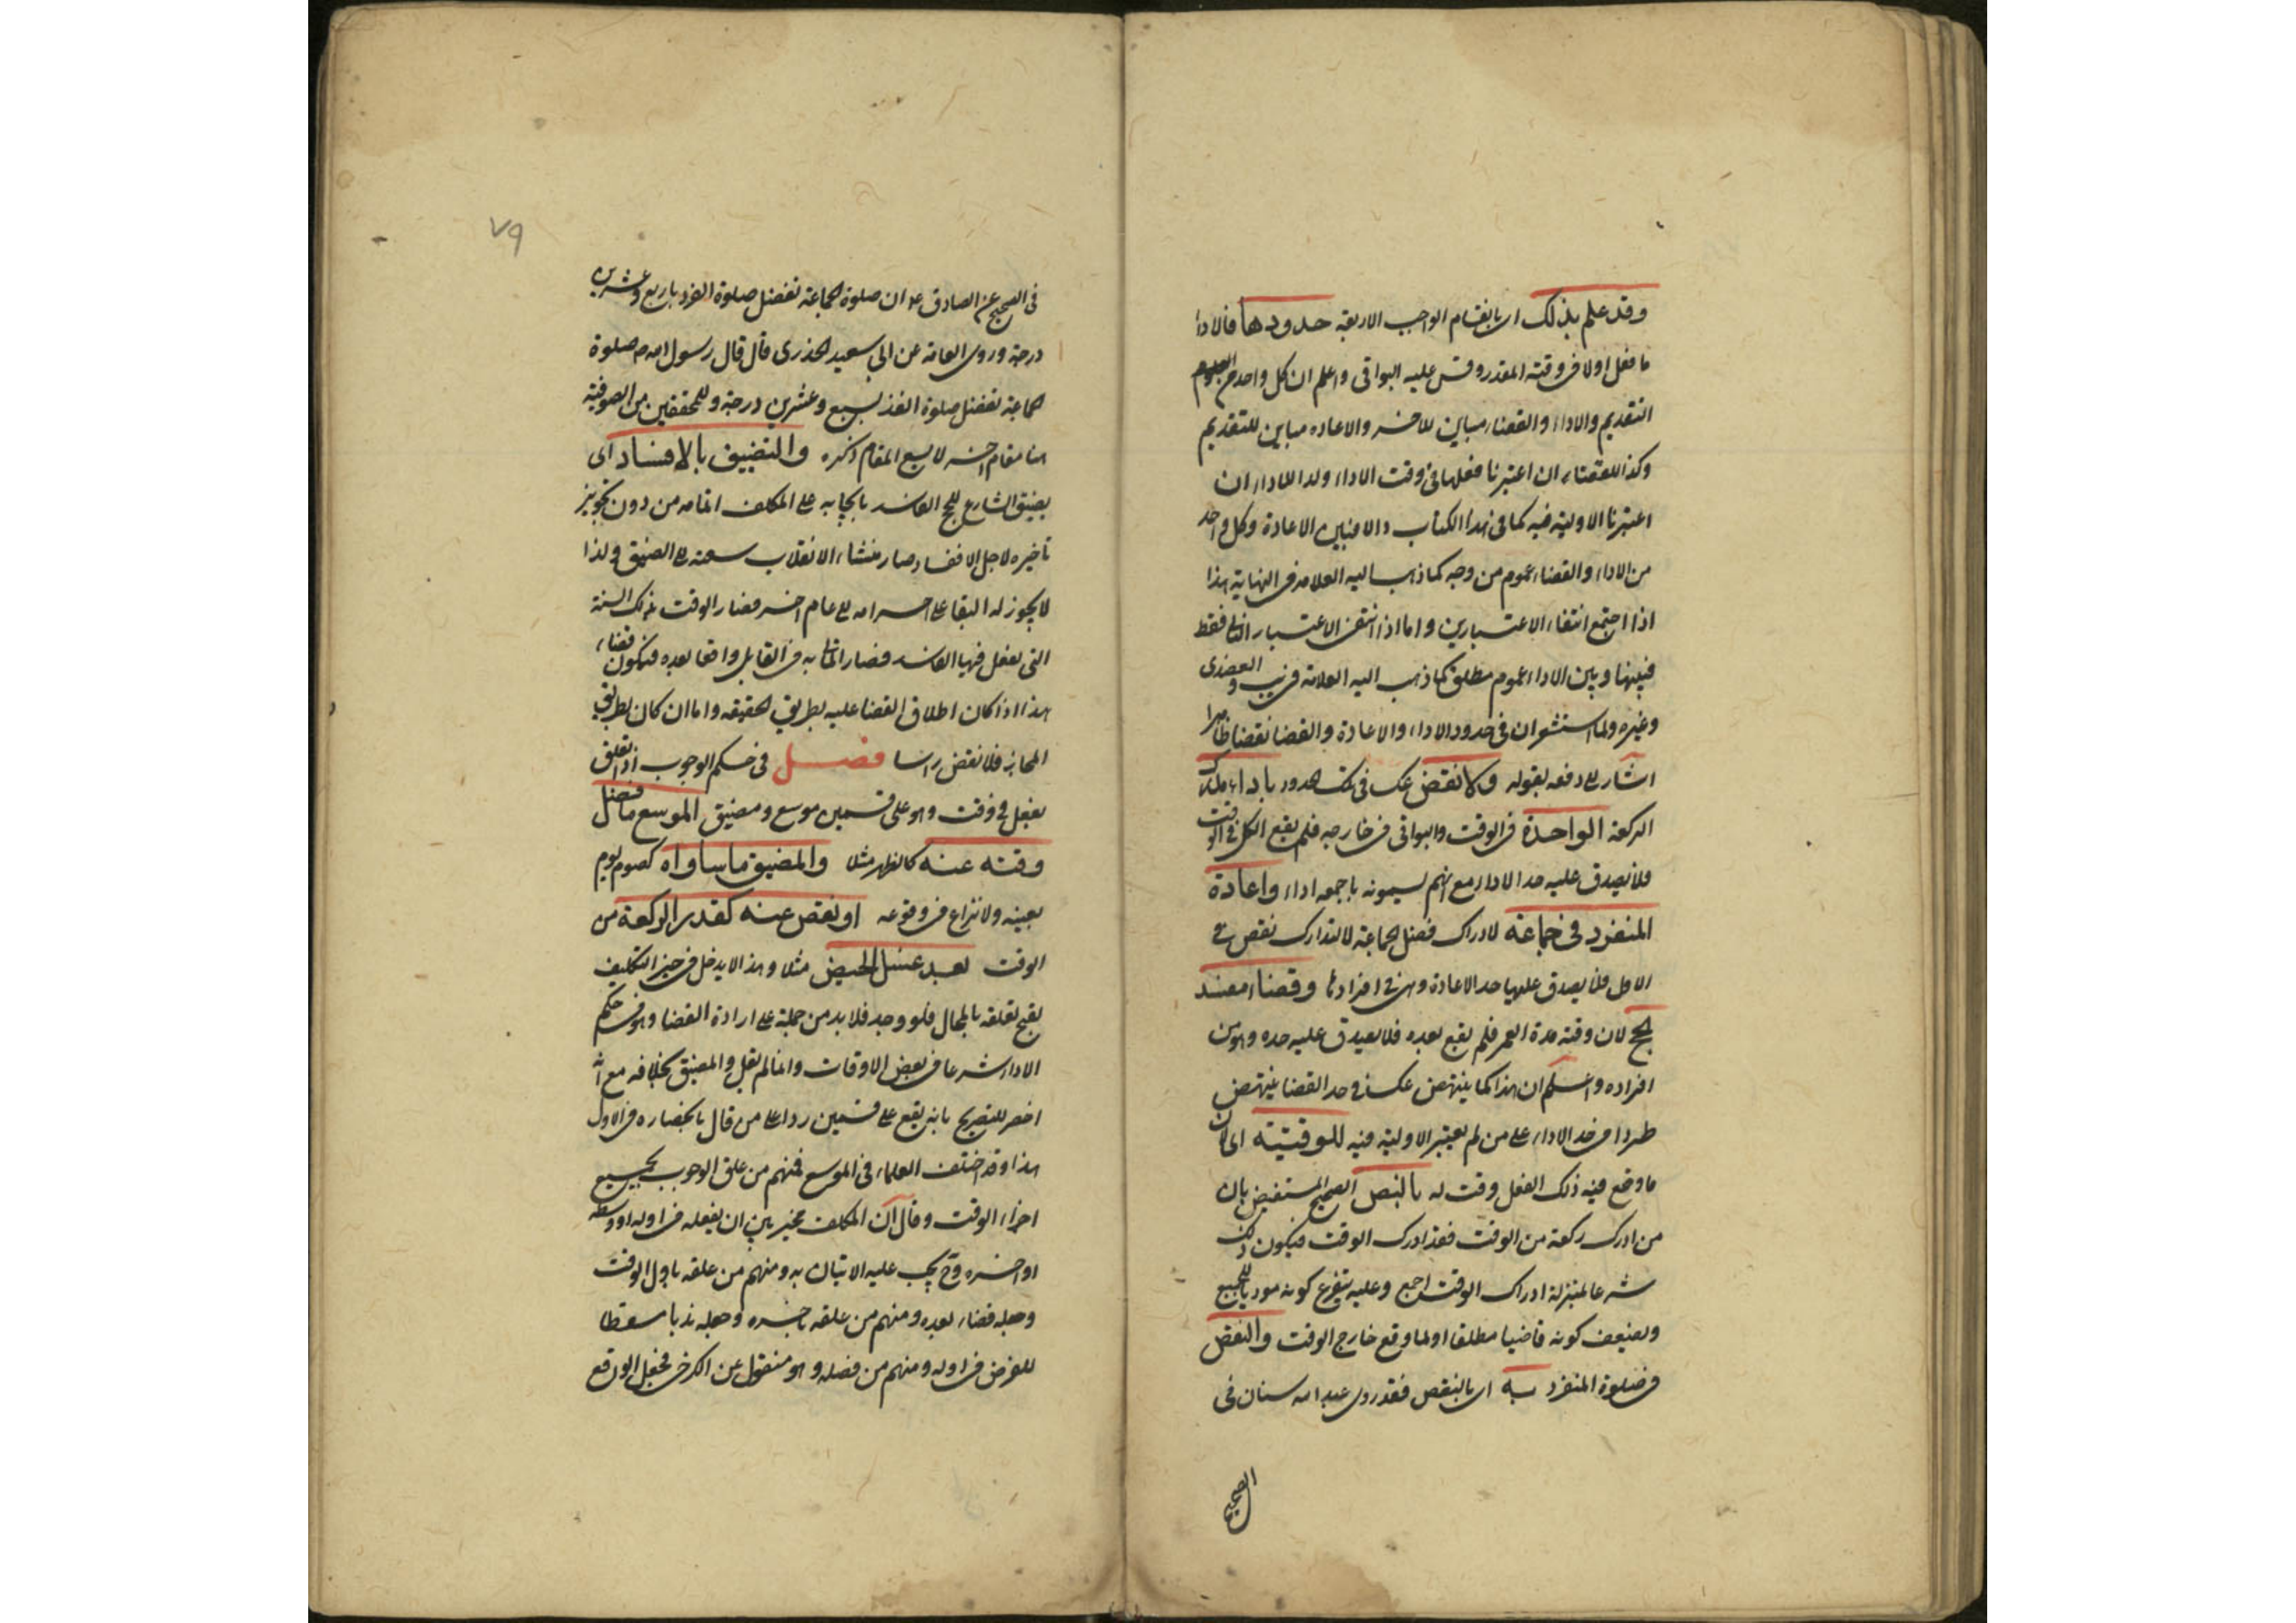 وقد علم بذلك اى بانقسام الواجب الاربعة حدودها فالادا
ما فعل اولا فى وقته المقدر وقس عليه البواقى واعلم ان كل واحد من
التقديم والاداء والقضاء مباين للاخر والاعاده مباين للتقديم
وكذا للقضاء ان اعتبرنا فعلها فى وقت الاداء وكذا للاداء ان
اعتبرنا الاولية فيه كما فى هذا الكتاب والا فبين الاعادة وكل واحد
من الاداء والقضاء عموم من وجه كما ذهب اليه العلامه فى النهاية هذا
اذا اجتمع انتفاء الاعتبارين واما اذا انتفى الاعتبار الثانى فقط
فبينها وبين الاداء عموم مطلق كما ذهب اليه العلامة فى يب والعضدى
وغيره ولما استشعر ان فى حدود الاداء والاعادة والقضا نقضا ظاهرا
اشار الى دفعه بقوله ولا نقض عكسا فى تلك الحدود باداء مدرك
الركعة الواحدة فى الوقت والبواقى فى خارجه فلم يقع الكل فى الوقت
فلا يصدق عليه حد الاداء مع انهم يسمونه باجمعه اداء واعادة
المنفرد فى جماعة لادراك فضل الجماعة لا لتدارك نقص فى
الاول فلا يصدق عليها حد الاعادة وهى من افرادها وقضاء مفسد
الحج لان وقته مدة العمر فلم يقع بعده فلا يصدق عليه حده وهو من
افراده واعلم ان هذا كما ينتهض عكسا فى حد القضا ينتهض
طردا فى حد الاداء على من لم يعتبر الاولية فيه للوقتية اى لان
ما وقع فيه ذلك الفعل وقت له بالنص الصحيح المستفيض بان
من ادرك ركعة من الوقت فقد ادرك الوقت فيكون ذلك
شرعا بمنزلة ادراك الوقت اجمع وعليه يتفرع كونه موديا للجميع
ويضعف كونه قاضيا مطلقا او لما وقع خارج الوقت والنقض
فى صلوة المنفرد به اى بالنقص فقد روى عبد الله سنان فى
الصحيح
٧٩
فى الصحيح عن الصادق ع ان صلوة الجماعة تفضل صلوة الفرد باربع وعشرين
درجة وروى العامة عن ابى سعيد الخدرى قال قال رسول الله م صلوة
الجماعة تفضل صلوة الفذ بسبع وعشرين درجة وللمحققين من الصوفية
هنا مقام اخر لا يسع المقام ذكره والتضييق بالافساد اى
بضيق الشارع للحج الفاسد بايجابه على المكلف اتمامه من دون تجويز
تاخيره لاجل الافساد صار منشاء الانقلاب سعته الى الضيق ولذا
لا يجوز له البقا على احرامه الى عام اخر فصار الوقت تلك السنة
التى فعل فيها الفاسد فصار الاتيان به فى القابل واقعا بعده فيكون قضاء
هذا اذا كان اطلاق القضا عليه بطريق الحقيقه واما ان كان بطريق
المجاز فلا نقض راسا فصل فى حكم الوجوب اذا تعلق
بفعل فى وقت وهو على قسمين موسع ومضيق الموسع ما فضل
وقته عنه كالظهر مثلا والمضيق ما ساواه كصوم يوم
بعينه ولا نزاع فى وقوعه او نقص عنه كقدر الركعة من
الوقت بعد غسل الحيض مثلا وهذا لا يدخل فى حيز التكليف
لقبح تعلقه بالمحال فلو وجد فلا بد من حمله على ارادة القضا وهو فى حكم
الاداء شرعا فى بعض الاوقات وانما لم يقل والمضيق بخلافه مع انه
اخصر للتصريح بانه يقع على قسمين ردا على من قال بانحصاره فى الاول
هذا وقد اختلف العلماء فى الموسع فمنهم من علق الوجوب بجميع
اجزاء الوقت وقال ان المكلف مخير بين ان يفعله فى اوله او وسطه
او اخره وح يجب عليه الاتيان به ومنهم من علقه باول الوقت
وجعله قضاء بعده ومنهم من علقه باخره وجعله ندبا مسقطا
للفرض فى اوله ومنهم من فصله وهو منقول عن الكرخى فجعل الواقع